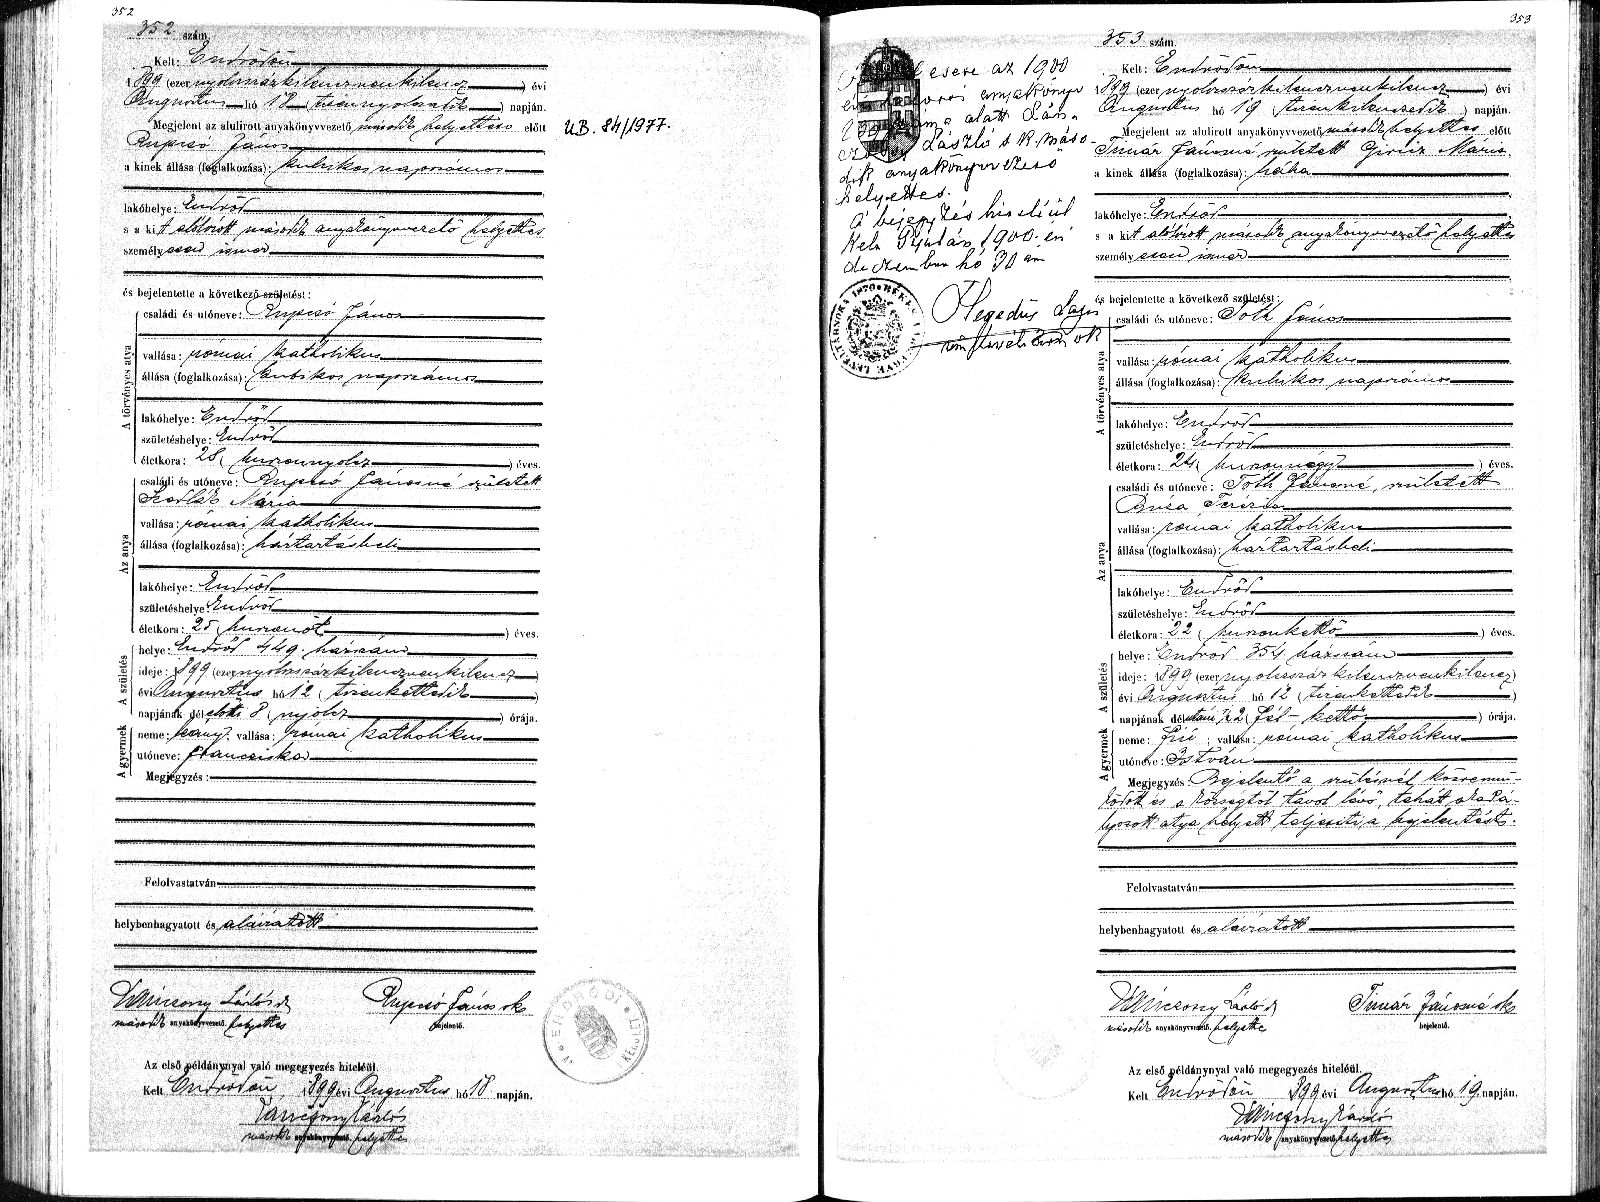 352
352 szám.
Kelt: Endrődön
1899 (ezernyolcszázkilenczvenkilencz) évi
Augustus hó 18 (tizennyolczadik) napján.
Megjelent az alulirott anyakönyvvezető második helyettes előtt
János
a kinek állása (foglalkozása): kubikos napszámos
lakóhelye: Endrőd
s a kit alólírott második anyakönyvvezető helyettes
személyesen ismer
és bejelentette a következő születést:
A törvényes atya
családi és utóneve: János
vallása: római katholikus
állása (foglalkozása): kubikos napszámos
lakóhelye: Endrőd
születéshelye: Endrőd
életkora: 28 (huszonnyolcz) éves.
Az anya
családi és utóneve: Jánosné született
Mária
vallása: római katholikus
állása (foglalkozása): háztartásbeli
lakóhelye: Endrőd
születéshelye: Endrőd
életkora: 25 (huszonöt) éves.
A születés
helye: Endrőd 449. házszám
ideje: 1899 (ezernyolcszázkilenczvenkilencz)
évi Augusztus hó 12 (tizenkettedik)
napjának délelőtti 8 (nyolcz) órája.
A gyermek
neme: leány; vallása: római katholikus
utóneve: Francziska
Megjegyzés:
Felolvastatván
helybenhagyatott és aláíratott
László
János sk
második anyakönyvvezető helyettes
bejelentő.
Az első példánynyal való megegyezés hiteléül.
Kelt Endrődön, 1899 évi Augustus hó 18 napján.
László
második anyakönyvvezető helyettes
UB. 84/1977.
ENDRŐDI
353
csere az 1900
anyakönyv
alatt
László s. k. máso-
dik anyakönyvvezető
helyettes.
A bejegyzés hiteléül
Kelt Gyulán, 1900. évi
deczember hó 30 án
Hegedüs
353 szám.
Kelt: Endrődön
1899 (ezernyolcszázkilenczvenkilencz) évi
Augustus hó 19 (tizenkilenczedik) napján.
Megjelent az alulirott anyakönyvvezető második helyettes előtt
Timár Jánosné, született Mária
a kinek állása (foglalkozása): bába
lakóhelye: Endrőd
s a kit alólírott második anyakönyvvezető helyettes
személyesen ismer
és bejelentette a következő születést:
A törvényes atya
családi és utóneve: Tóth János
vallása: római katholikus
állása (foglalkozása): kubikos napszámos
lakóhelye: Endrőd
születéshelye: Endrőd
életkora: 24 (huszonnégy) éves.
Az anya
családi és utóneve: Tóth Jánosné, született
Terézia
vallása: római katholikus
állása (foglalkozása): háztartásbeli
lakóhelye: Endrőd
születéshelye: Endrőd
életkora: 22 (huszonkettő) éves.
A születés
helye: Endrőd 354 házszám
ideje: 1899 (ezernyolcszázkilenczvenkilencz)
évi Augustus hó 12 (tizenkettedik)
napjának délutáni ½2 (fél-kettő) órája.
A gyermek
neme: fiú; vallása: római katholikus
utóneve: István
Megjegyzés Bejelentő a szülésnél közremű-
ködött és a községtől távol lévő, tehát akadá-
lyozott atya helyett teljesíti a bejelentést.
Felolvastatván
helybenhagyatott és aláíratott
László
Timár Jánosné sk
második anyakönyvvezető helyettes
bejelentő.
Az első példánynyal való megegyezés hiteléül.
Kelt Endrődön 1899 évi Augustus hó 19. napján.
László
második anyakönyvvezető helyettes